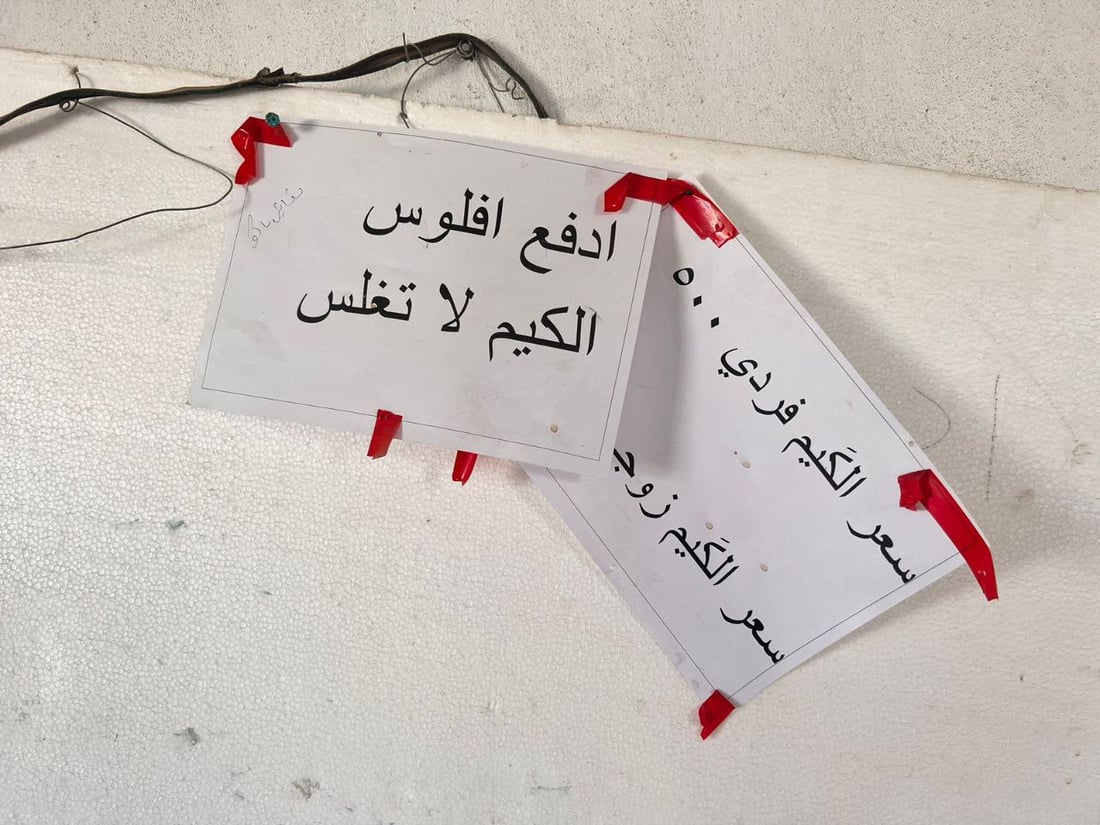 ادفع افلوس
الكيم لا تغلس
سعر الكَيم فردي ٥٠٠
سعر الكَيم زوجي